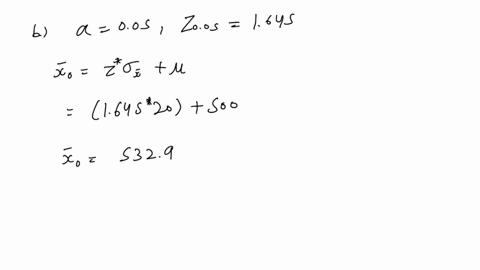 b) α = 0.05, Z0.05 = 1.645
x̄₀ = z*σx̄ + μ
= (1.645*20) + 500
x̄₀ = 532.9